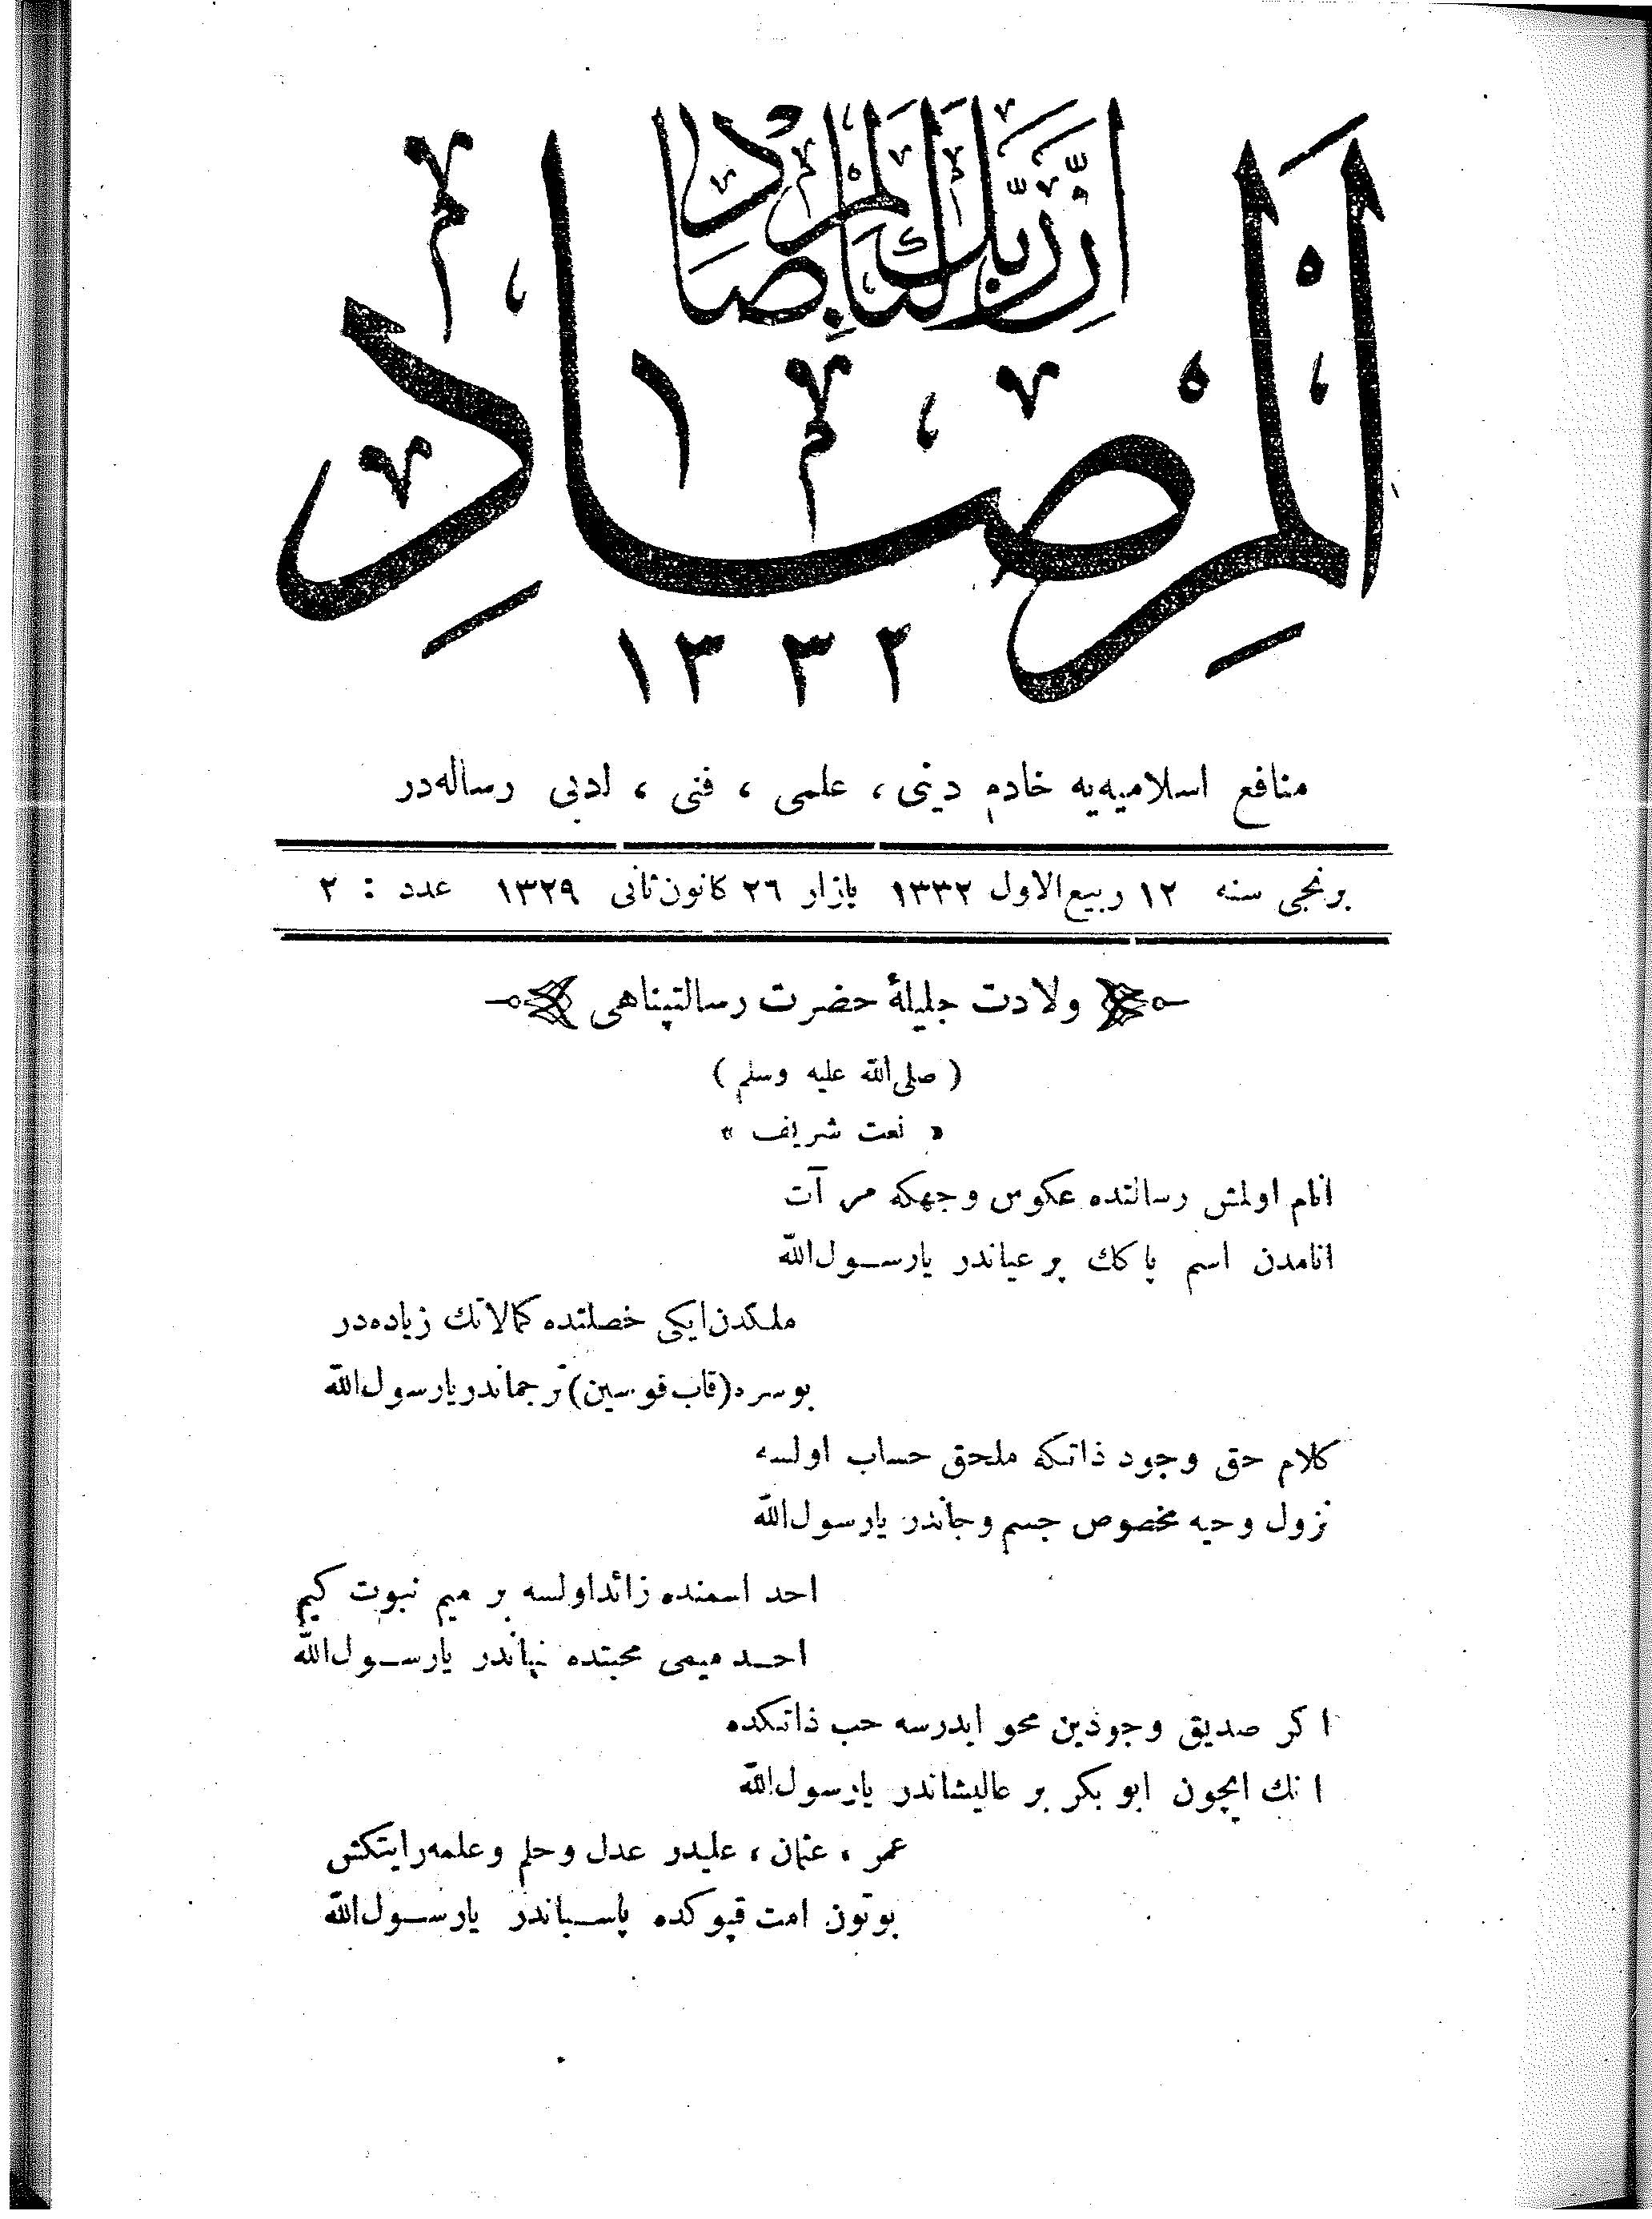 إن ربك لبالمرصاد
المرصاد
١٣٣٢
منافع اسلاميه‌يه خادم دينى ، علمى ، فنى ، ادبى رساله‌در
برنجى سنه ١٢ ربيع‌الاول ١٣٣٢ پازار ٢٦ كانون‌ثانى ١٣٢٩ عدد : ٢
ولادت جليلهٔ حضرت رسالتپناهى
( صلى‌الله عليه وسلم )
« نعت شريف »
انام اولمش رسالتده عكوس وجهكه مرآت
انامدن اسم پاكك پرعياندر يارسول‌الله
ملكدن‌ايكى خصلتده كمالاتك زياده‌در
بوسره (قاب قوسين) ترجماندر يارسول‌الله
كلام حق وجود ذاتكه ملحق حساب اولسه
نزول وحيه مخصوص جسم وجاندر يارسول‌الله
احد اسمنده زائداولسه بر ميم نبوت كيم
احد ميمى محبتده نهاندر يارسول‌الله
اكر صديق وجودين محو ايدرسه حب ذاتكده
انك ايچون ابو بكر بر عاليشاندر يارسول‌الله
عمر ، عثمان ، عليدر عدل وحلم وعلمه‌رايتكش
بوتون امت قپوكده پاسباندر يارسول‌الله